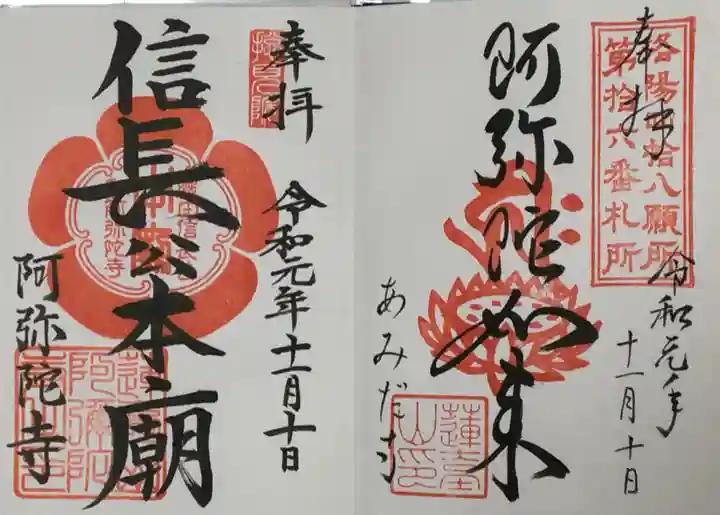 奉拝
阿弥陀如来
洛陽四拾八願所
第拾六番札所
令和元年
十一月十日
あみだ寺
蓮臺
山印
奉拝
信長公本廟
令和元年十一月十日
阿弥陀寺